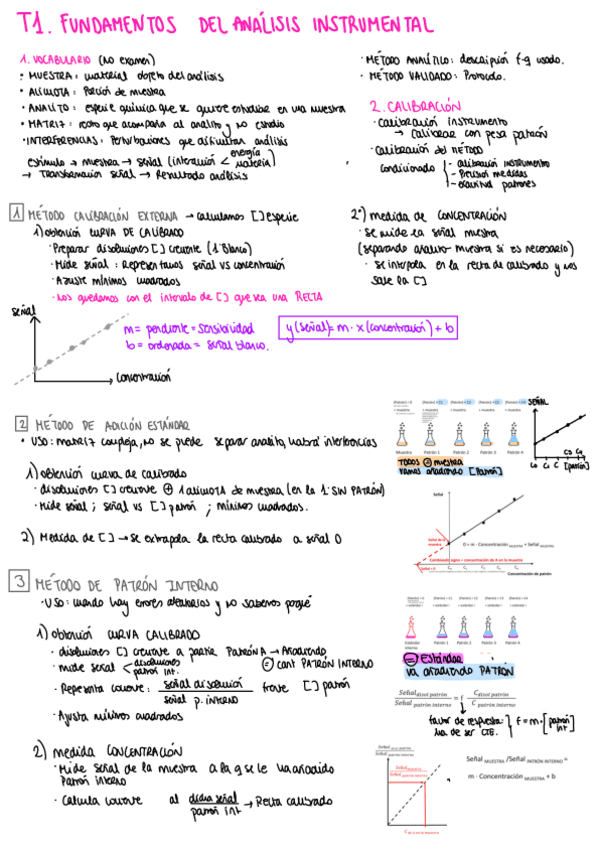 T1. FUNDAMENTOS DEL ANÁLISIS INSTRUMENTAL
1. VOCABULARIO (no examen)
· MUESTRA: material objeto del análisis
· ALÍCUOTA: Porción de muestra
· ANALITO: especie química que se quiere estudiar en una muestra
· MATRIZ: resto que acompaña al analito y no estudio
· INTERFERENCIAS: Perturbaciones que dificultan análisis
estímulo → muestra → señal (interacción < energía materia)
→ Transformación señal → Resultado análisis
· MÉTODO ANALÍTICO: descripción f-q usado.
· MÉTODO VALIDADO: Protocolo.
2. CALIBRACIÓN
· Calibración instrumento
→ Calibrar con pesa patrón
· Calibración del MÉTODO
Condicionado
- calibración instrumento
- Precisión medidas
- exactitud patrones
1 MÉTODO CALIBRACIÓN EXTERNA → calculamos [ ] especie
1) obtención CURVA DE CALIBRADO
· Preparar disoluciones [ ] creciente (1 blanco)
· Mide señal: Representamos señal vs concentración
· Ajuste mínimos cuadrados
· Nos quedamos con el intervalo de [ ] que sea una RECTA
2º) medida de CONCENTRACIÓN
· se mide la señal muestra
(separando analito-muestra si es necesario)
· se interpola en la recta de calibrado y nos
sale la [ ]
señal
m = pendiente = sensibilidad
b = ordenada = señal blanco.
y (señal) = m · x (concentración) + b
Concentración
2 MÉTODO DE ADICIÓN ESTÁNDAR
· USO: matriz compleja, no se puede separar analito, habrá interferencias
1) obtención curva de calibrado
· disoluciones [ ] creciente ⊕ 1 alícuota de muestra (en la 1: SIN PATRÓN)
· Mide señal; señal vs [ ] patrón; mínimos cuadrados.
2) Medida de [ ] → se extrapola la recta calibrado a señal 0
Muestra Patrón 1 Patrón 2 Patrón 3 Patrón 4
TODOS ⊜ muestra
vamos añadiendo [Patrón]
SEÑAL
[patrón]
Señal
Señal de la muestra
0 = m · Concentración MUESTRA + Señal MUESTRA
Cambiando signo = concentración de A en la muestra
Señal = 0
Concentración de patrón
3 MÉTODO DE PATRÓN INTERNO
· USO: cuando hay errores aleatorios y no sabemos porqué
1) obtención CURVA CALIBRADO
· disoluciones [ ] creciente a partir Patrón A → Añadiendo
⊜ cant PATRÓN INTERNO
· mide señal < disoluciones patrón int.
· Representa cociente: señal disolución / señal p. INTERNO frente [ ] patrón
· Ajusta mínimos cuadrados
2) medida CONCENTRACIÓN
· Mide señal de la muestra a la q se le ha añadido
Patrón interno
· Calcula cociente al dicha señal / patrón int → Recta calibrado
⊜ ESTÁNDAR
va añadiendo PATRÓN
Señal disol patrón / Señal patrón interno = f C disol patrón / C patrón interno
factor de respuesta:
ha de ser CTE.
f = m · [patrón int]
Señal MUESTRA / Señal PATRÓN INTERNO =
m · Concentración MUESTRA + b